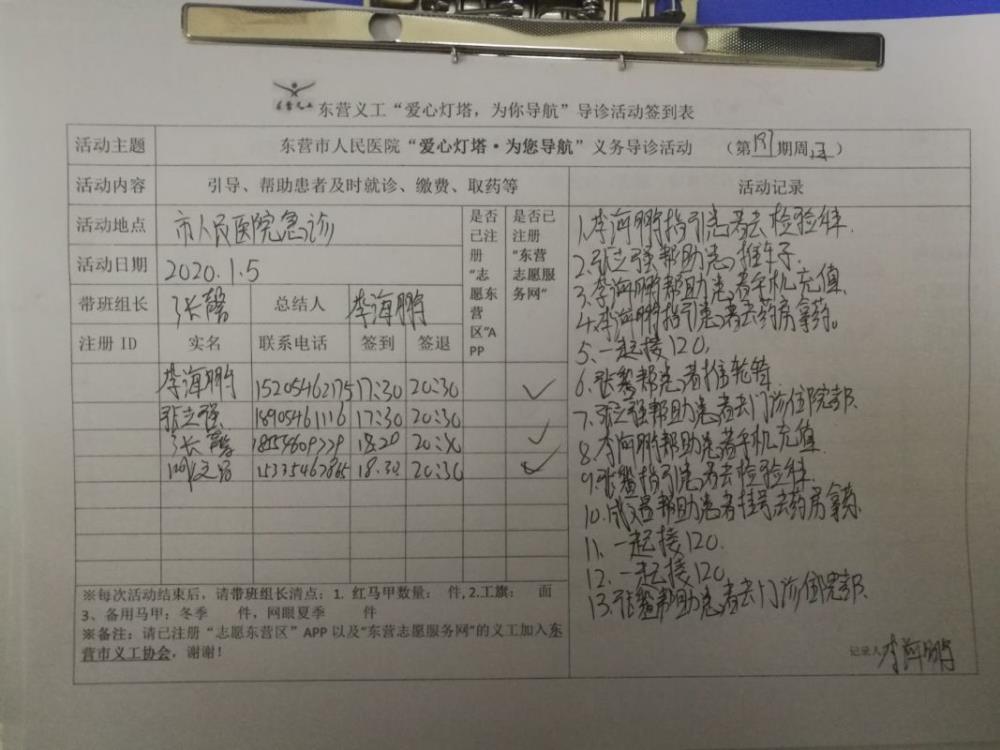 东营义工
东营义工“爱心灯塔，为你导航”导诊活动签到表
活动主题 东营市人民医院“爱心灯塔·为您导航”义务导诊活动 （第 期周 ）
活动内容 引导、帮助患者及时就诊、缴费、取药等 活动记录
活动地点 市人民医院急诊
活动日期 2020.1.5
是否已注册“志愿东营区”APP
是否已注册“东营志愿服务网”
带班组长 张馨 总结人 李海鹏
注册 ID 实名 联系电话 签到 签退
李海鹏 15205462175 17:30 20:30 ✓
张立强 18905461116 17:30 20:30
张馨 18:20 20:30 ✓
成文昌 18:30 20:30 ✓
1.李海鹏指引患者去检验科.
2.张立强帮助患者推车子.
3.李海鹏帮助患者手机充值.
4.李海鹏指引患者去药房拿药。
5.一起接120.
6.张馨帮患者推轮椅.
7.张立强帮助患者去门诊住院部.
8.李海鹏帮助患者手机充值
9.张馨指引患者去检验科.
10.成文昌帮助患者挂号去药房拿药.
11.一起接120.
12.一起接120
13.张馨帮助患者去门诊住院部.
※每次活动结束后，请带班组长清点：1. 红马甲数量： 件，2.工旗： 面
3、备用马甲：冬季 件，网眼夏季 件
※备注：请已注册“志愿东营区”APP 以及“东营志愿服务网”的义工加入东
营市义工协会，谢谢！
记录人 李海鹏